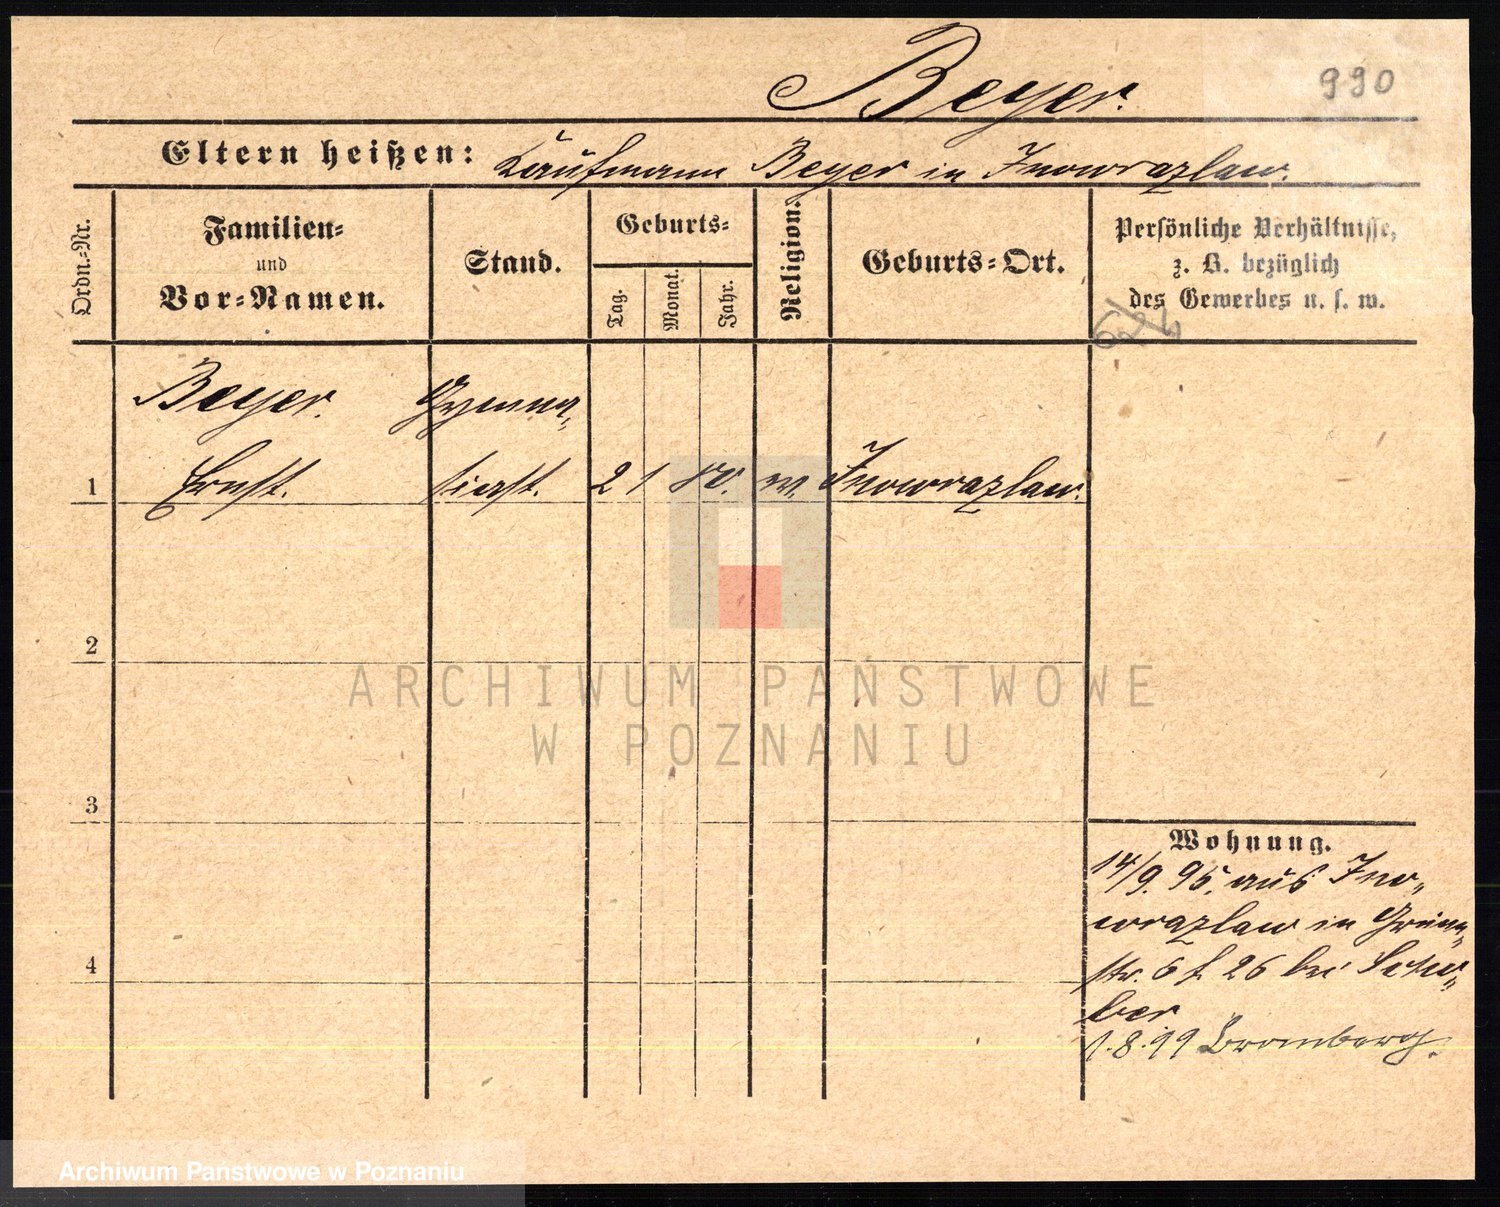 Beyer.
990
Eltern heißen: Kaufmann Beyer in Inowrazlaw.
Ordn.-Nr.
Familien-
und
Vor-Namen.
Stand.
Geburts-
Tag.
Monat.
Jahr.
Religion.
Geburts-Ort.
Persönliche Verhältnisse,
z. B. bezüglich
des Gewerbes u. s. w.
Beyer. Gymna-
1 Ernst. siast. 2 1 80. ev. Inowrazlaw.
2
3
4
Wohnung.
14/9. 95. aus Ino-
wrazlaw in Grün-
str. 6 f 26 bei
ber
1. 8. 99 Bromberg.
ARCHIWUM PAŃSTWOWE
W POZNANIU
Archiwum Państwowe w Poznaniu